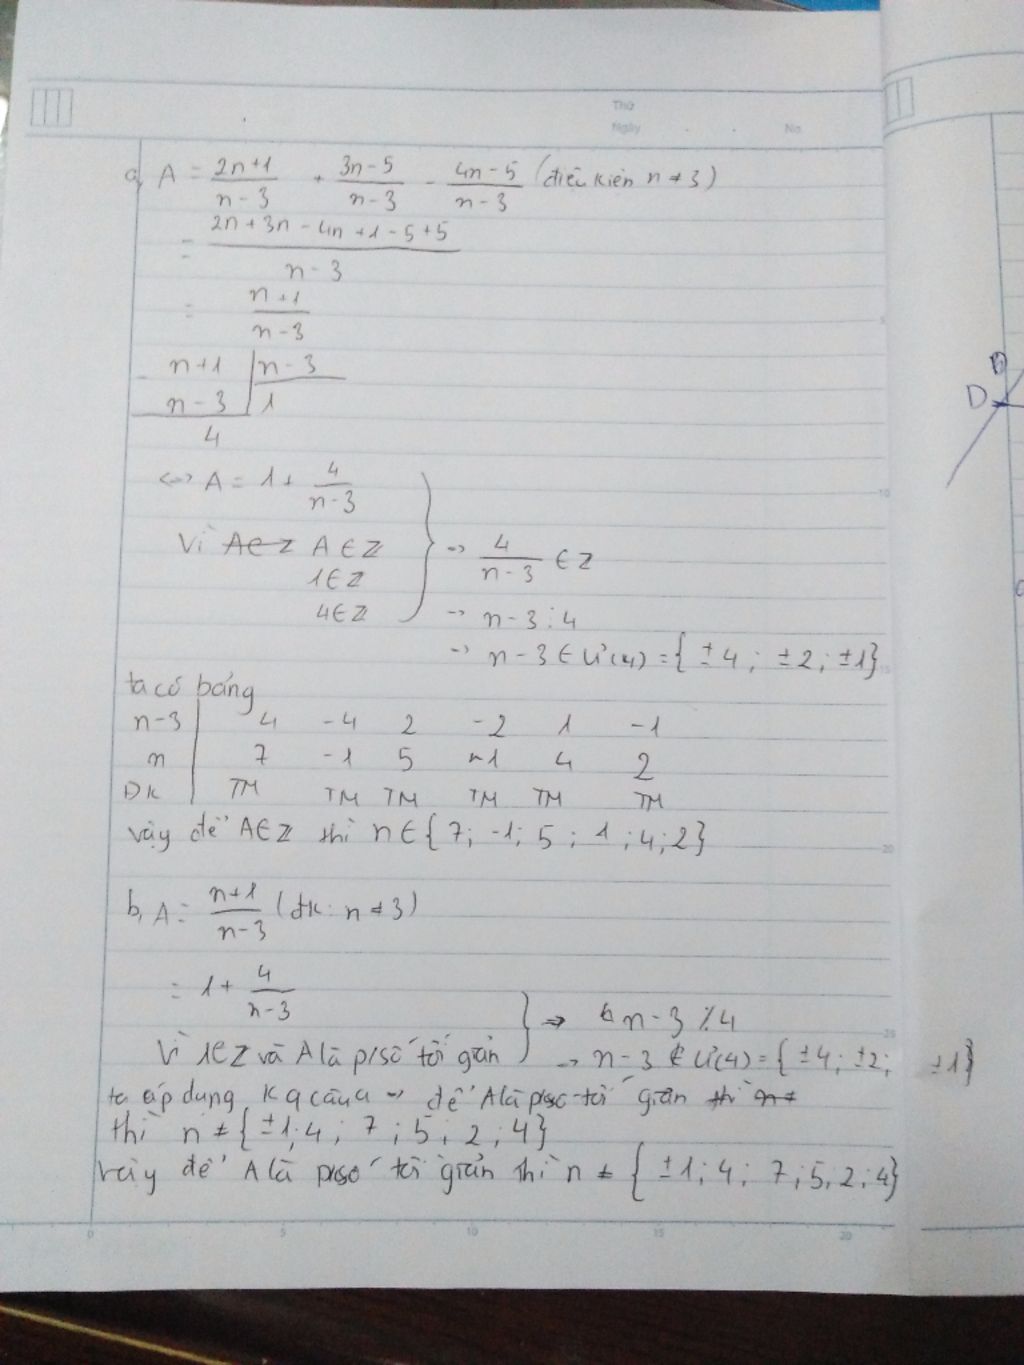 Thứ
Ngày . . No.
a, A = 2n+1/n-3 + 3n-5/n-3 - 4n-5/n-3 (điều kiện n ≠ 3)
= 2n+3n-4n+1-5+5/n-3
= n+1/n-3
- n+1 | n-3
n-3 | 1
4
<=> A = 1 + 4/n-3
Vì A∈Z A∈Z => 4/n-3 ∈ Z
1∈Z
4∈Z -> n-3 ⋮ 4
-> n-3 ∈ Ư(4) = { ±4; ±2; ±1}
ta có bảng
n-3 | 4 -4 2 -2 1 -1
n | 7 -1 5 -1 4 2
ĐK | TM TM TM TM TM TM
vậy để A∈Z thì n∈{7; -1; 5; 1; 4; 2}
b, A = n+1/n-3 (đk: n ≠ 3)
= 1 + 4/n-3
=> n-3 ⋮̸ 4
Vì 1∈Z và A là p/số tối giản -> n-3 ∉ Ư(4) = { ±4; ±2; ±1}
ta áp dụng kq câu a -> để A là p/số tối giản thì n≠
thì n ≠ {±1; 4; 7; 5; 2; 4}
vậy để A là p/số tối giản thì n ≠ { ±1; 4; 7; 5; 2; 4}
D
5
10
15
20
25
0 5 10 15 20